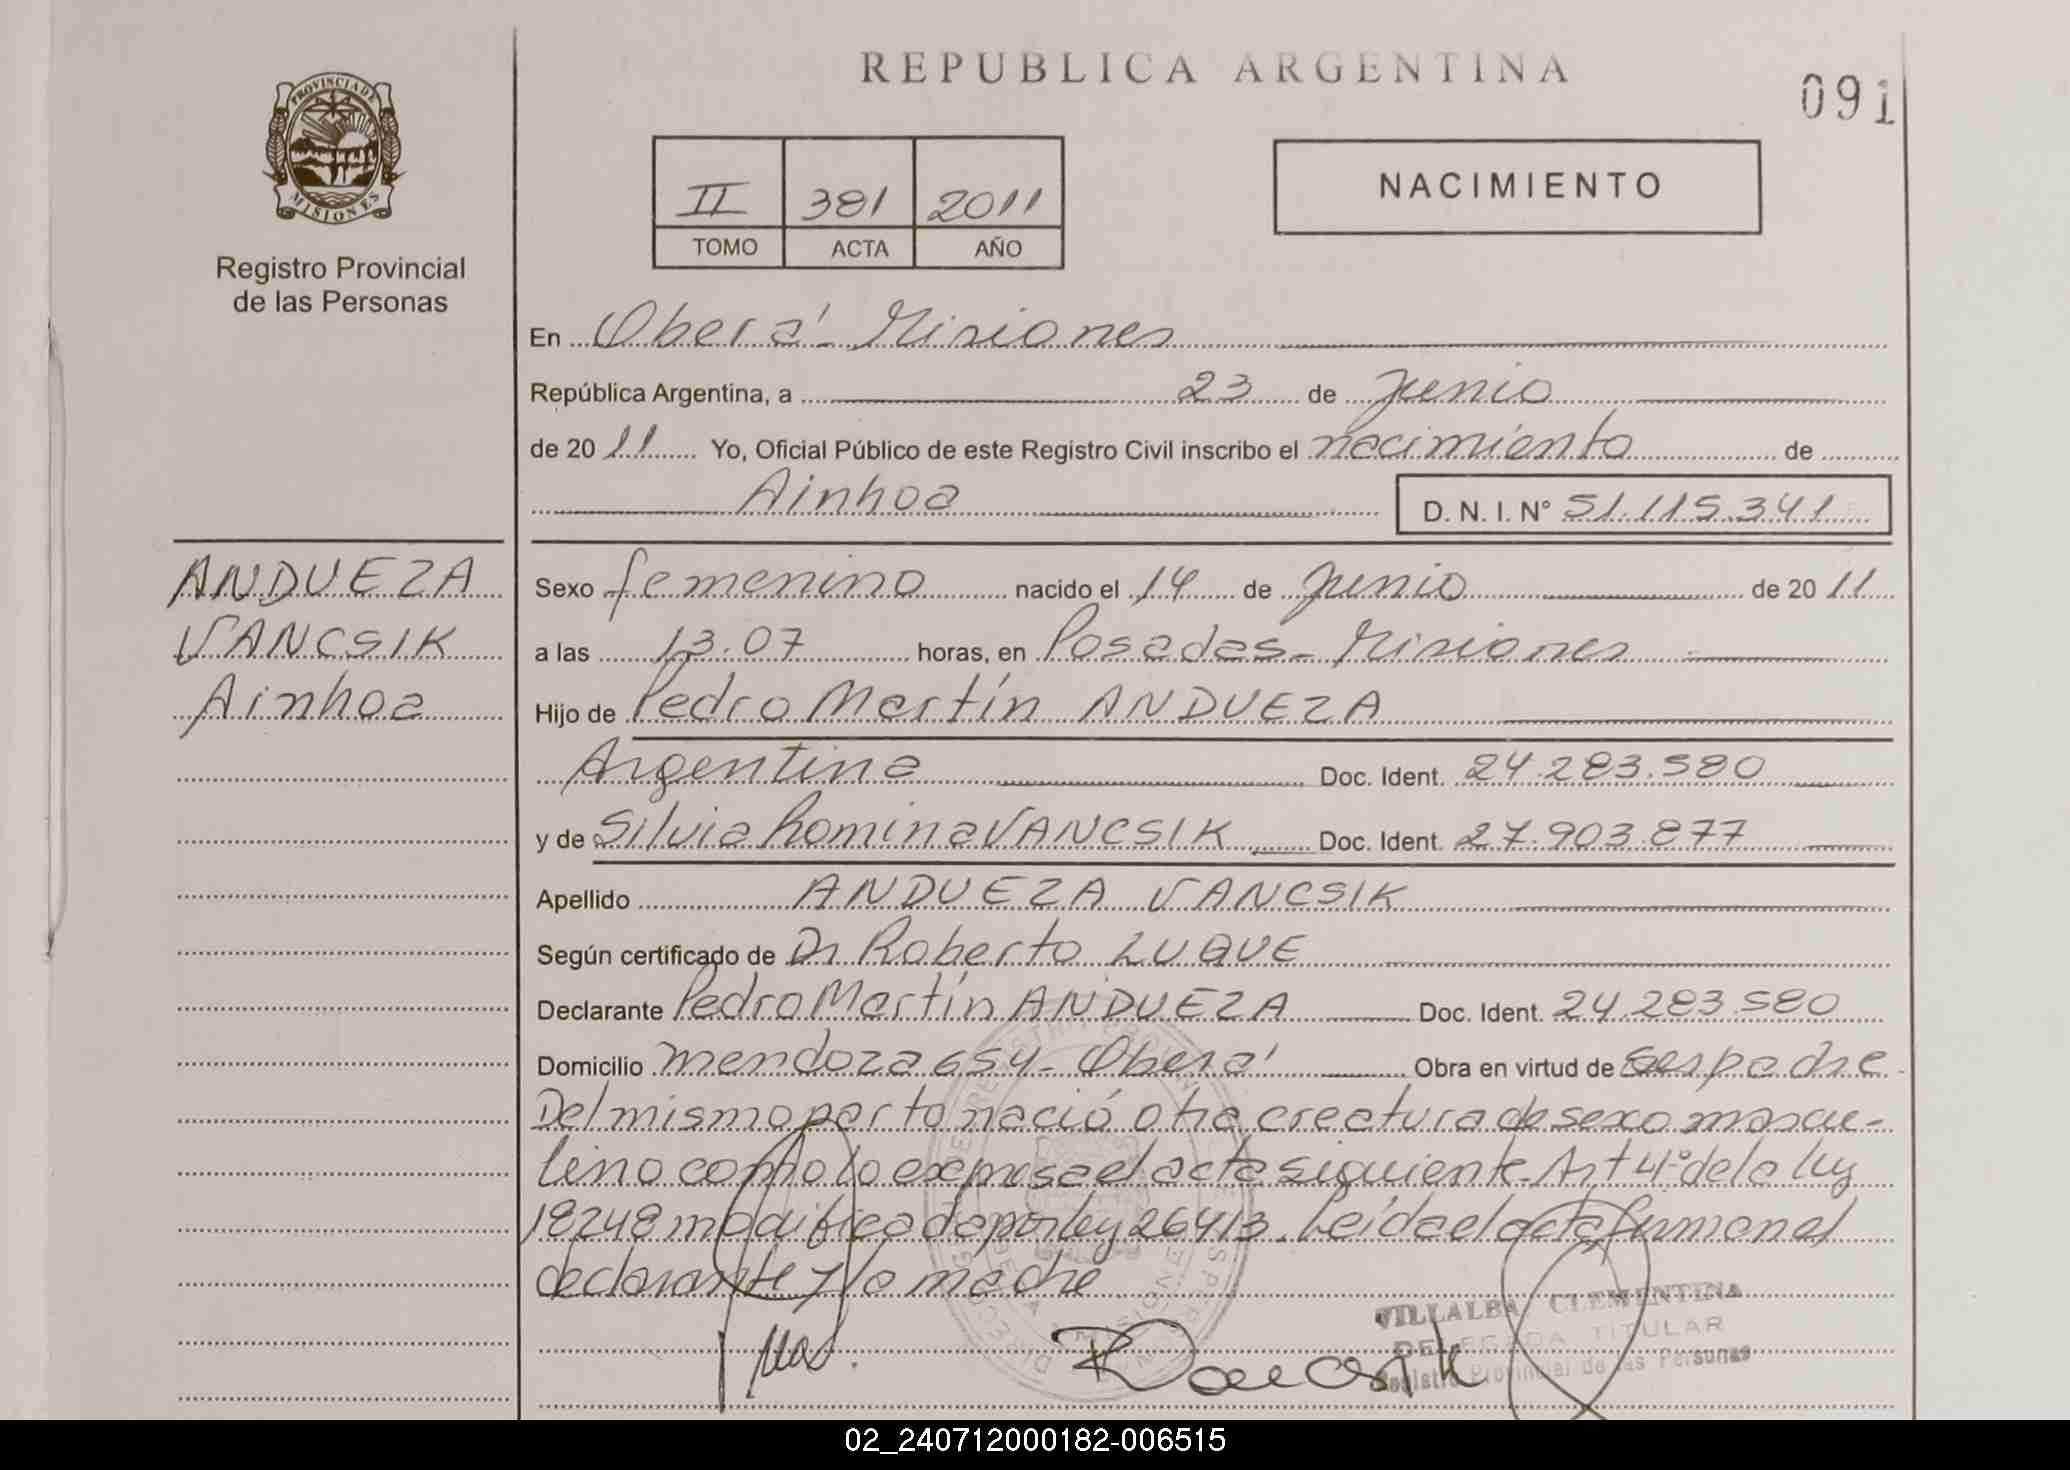 REPUBLICA ARGENTINA
091
PROVINCIA DE
MISIONES
Registro Provincial
de las Personas
II 381 2011
TOMO ACTA AÑO
NACIMIENTO
En Oberá - Misiones
República Argentina, a 23 de Junio
de 2011 Yo, Oficial Público de este Registro Civil inscribo el nacimiento de
Ainhoa D. N. I. N° 51.115.341
ANDUEZA
VANCSIK
Ainhoa
Sexo femenino nacido el 14 de Junio de 2011
a las 13.07 horas, en Posadas - Misiones
Hijo de Pedro Martín ANDUEZA
Argentina Doc. Ident. 24.283.580
y de Silvia Romina VANCSIK Doc. Ident. 27.903.877
Apellido ANDUEZA VANCSIK
Según certificado de Dr Roberto LUQUE
Declarante Pedro Martín ANDUEZA Doc. Ident. 24.283.580
Domicilio Mendoza 654 - Oberá Obra en virtud de Ser padre
Del mismo parto nació otra creatura de sexo mascu-
lino como lo expresa el acta siguiente. Art 4° de la ley
18248 modificada por ley 26413. Leída el acta firman el
declarante y la madre
VILLALBA, CLEMENTINA
DELEGADA TITULAR
Registro Provincial de las Personas
02_240712000182-006515